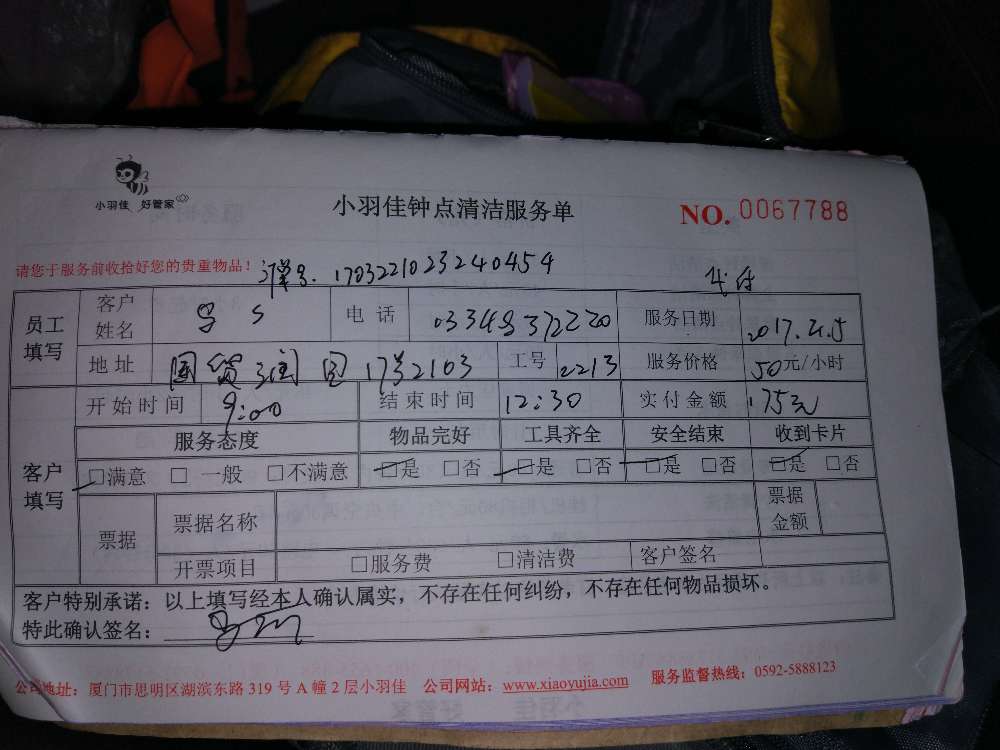 小羽佳 好管家
小羽佳钟点清洁服务单
NO. 0067788
请您于服务前收拾好您的贵重物品！
单号. 1703221023240454
代付
员工填写 客户姓名 电话 服务日期 2017.4.5
地址 国贸 1703 工号 2213 服务价格 50元/小时
开始时间 9:00 结束时间 12:30 实付金额 175元
客户填写 服务态度 物品完好 工具齐全 安全结束 收到卡片
□满意 □ 一般 □不满意 □是 □否 □是 □否 □是 □否 □是 □否
票据 票据名称 票据金额
开票项目 □服务费 □清洁费 客户签名
客户特别承诺：以上填写经本人确认属实，不存在任何纠纷，不存在任何物品损坏。
特此确认签名：
公司地址：厦门市思明区湖滨东路 319 号 A 幢 2 层小羽佳 公司网站：www.xiaoyujia.com 服务监督热线：0592-5888123